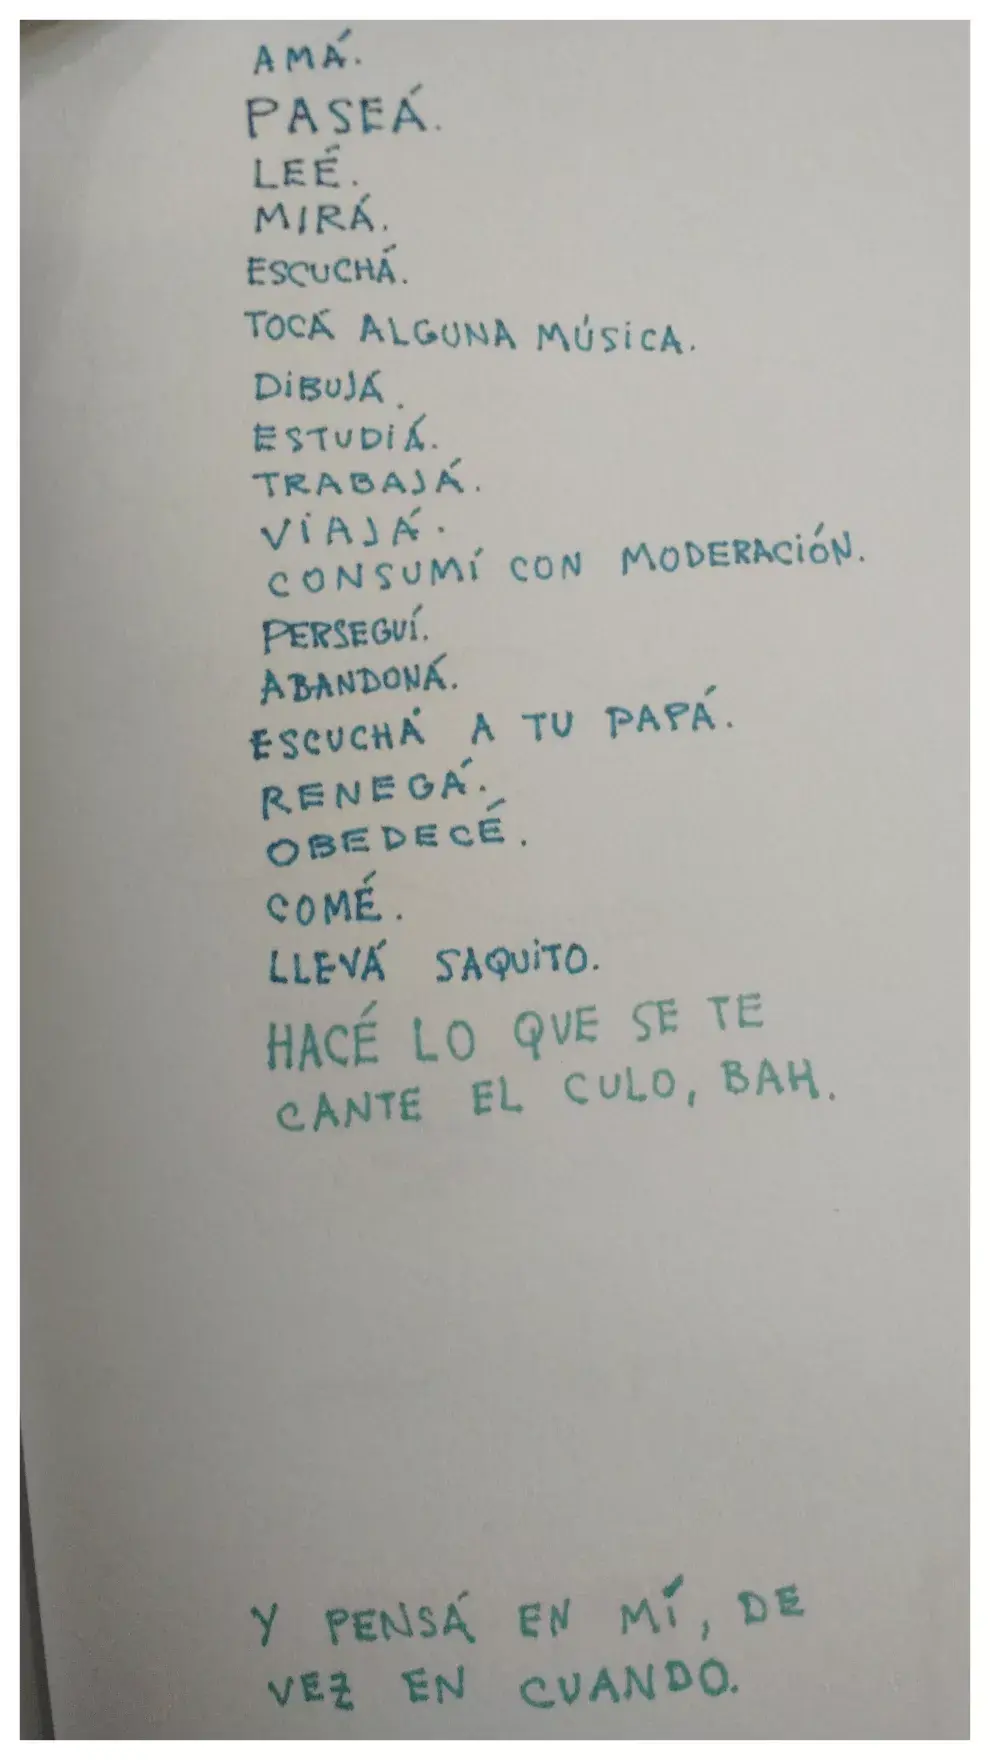 AMÁ.
PASEÁ.
LEÉ.
MIRÁ.
ESCUCHÁ.
TOCÁ ALGUNA MÚSICA.
DIBUJÁ.
ESTUDIÁ.
TRABAJÁ.
VIAJÁ.
CONSUMÍ CON MODERACIÓN.
PERSEGUÍ.
ABANDONÁ.
ESCUCHÁ A TU PAPÁ.
RENEGÁ.
OBEDECÉ.
COMÉ.
LLEVÁ SAQUITO.
HACÉ LO QUE SE TE
CANTE EL CULO, BAH.
Y PENSÁ EN MÍ, DE
VEZ EN CUANDO.